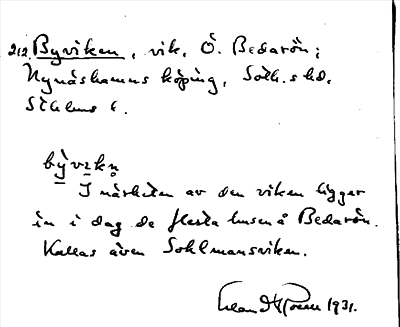 212 Byviken, vik, Ö. Bedarön;
Nynäshamns köping, Soth. shd.
Sthlms l.
bỳvɪkn̥
I närheten av den viken ligger
än i dag de flesta husen å Bedarön.
Kallas även Sohlmansviken.
1931.